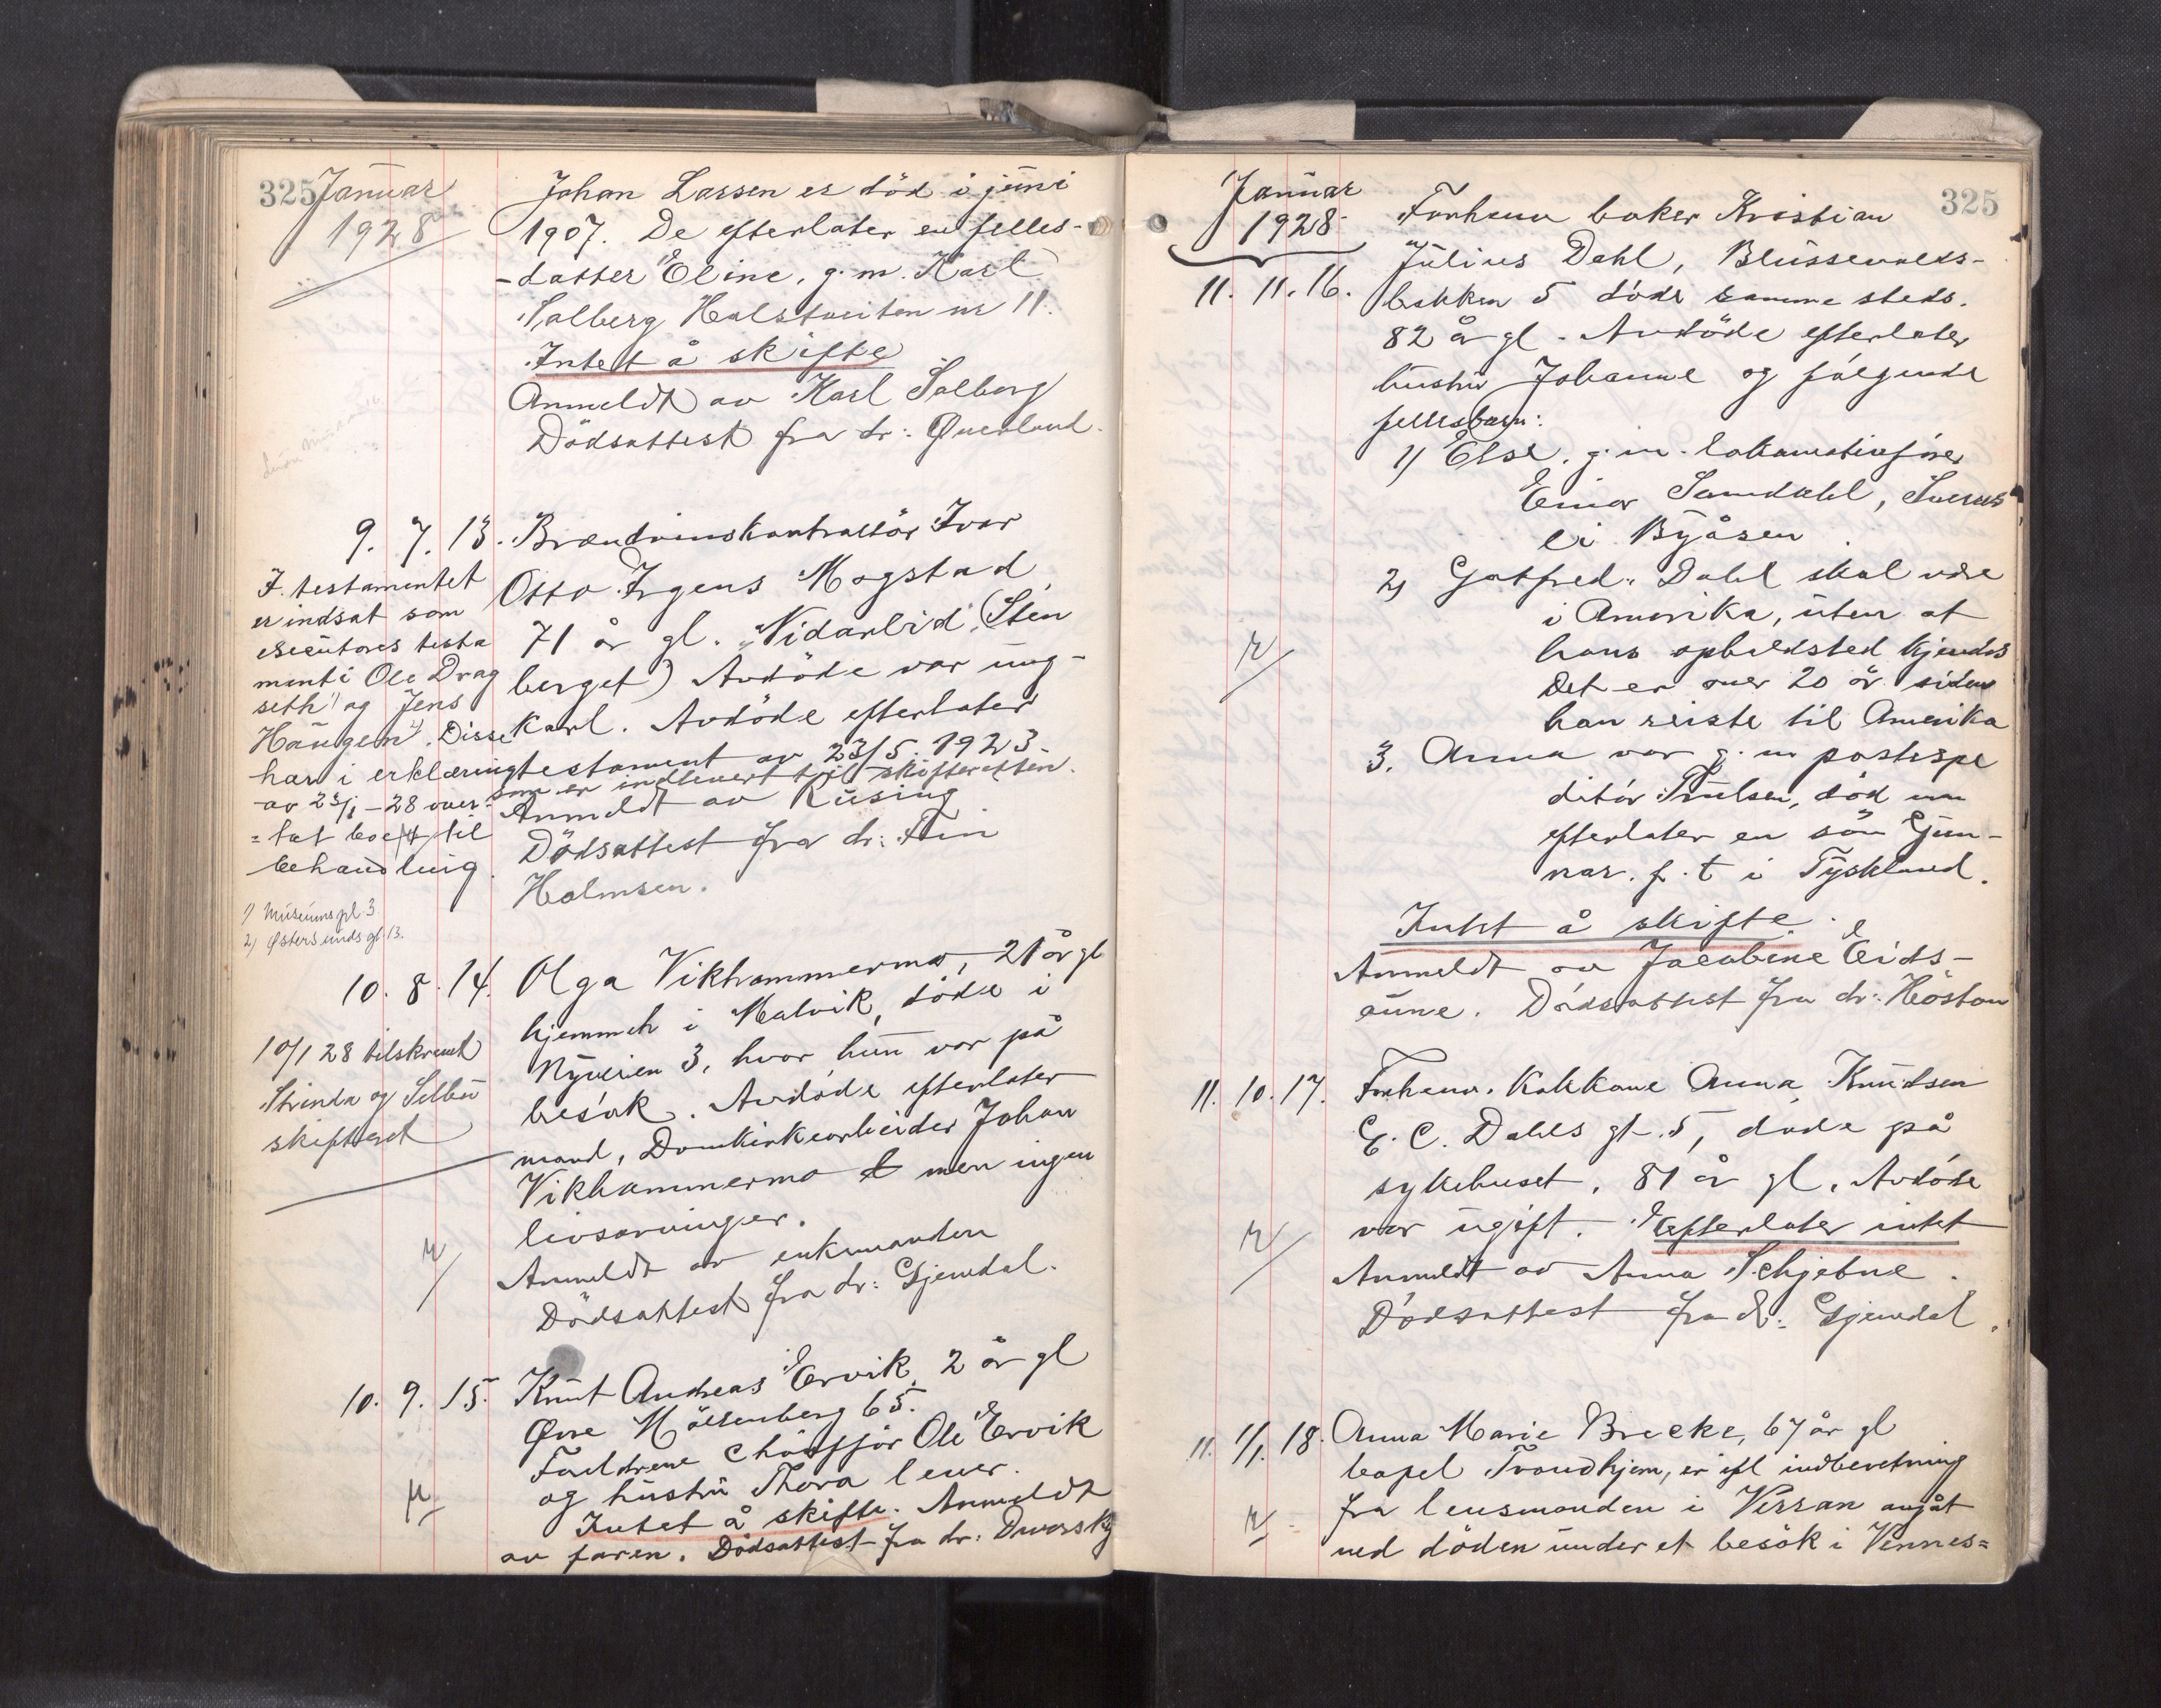 325 Januar
1928
Johan Larsen er död i juni
1907. De efterlater en felles-
-datter Eline, g.m. Karl
Solberg Halstveiten nr 11.
Intet å skifte
Anmeldt av Karl Solberg
Dödsattest fra dr: Querlund.
9. 7. 13. Brændvinskontrollör Ivar
Otto Irgens Mogstad,
71 år gl. "Nidarlid" (Sten
berget) Avdöde var ung-
karl. Avdöde efterlater
testament av 23/5. 1923.
som er indlevert til skifteretten.
Anmeldt av Rüsing
Dödsattest fra dr: Fin
Holmsen.
I testamentet
er indsat som
executores testa
menti Ole Drag
seth 1) og Jens
Haugen 2). Disse
har i erklæring
av 23/1 - 28 over-
=tat boet til
behandling.
1) Museumspl. 3
2) Østersundsgt. 13.
10. 8. 14. Olga Vikhammermo, 21 år gl
hjemmeh i Malvik, döde i
Nyveien 3, hvor hun var på
besök. Avdöde efterlater
mand, Domkirkearbeider Johan
Vikhammermo men ingen
livsarvinger.
Anmeldt av enkemanden
Dödsattest fra dr: Gjemdal.
10/1 28 tilskrevet
Strinda og Selbu
skifteret
10. 9. 15. Knut Andreas Ervik, 2 år gl
Øvre Möllenberg 65.
Foreldrene Chöufför Ole Ervik
og hustru Thora lever.
Intet å skifte. Anmeldt
av faren. Dödsattest fra dr: Dworsky
Januar
1928
325
11. 11. 16. Forhenv baker Kristian
Julius Dahl, Blüssevolds-
bakken 5 döde samme steds.
82 år gl. Avdöde efterlater
hustru Johanne og fölgende
fellesbarn:
1) Else, g.m. lokomotivförer
Einar Samdahl, Sverres
li Byåsen.
2) Gotfred. Dahl skal være
i Amerika, uten at
hans opholdsted kjendes
Det er over 20 år siden
han reiste til Amerika
3. Anna var g.m postexpe
ditör Trulsen, död nu
efterlater en sön Gun-
nar. f.t i Tyskland.
Intet å skifte.
Anmeldt av Jacobine Eids-
aune. Dödsattest fra dr: Höstou
11. 10. 17. Forhenv. Kokkone Anna Knudsen
E. C. Dahls gt. 5, döde på
sykehuset, 81 år gl. Avdöde
var ugift. Efterlater intet
Anmeldt av Anna Schjetne.
Dödsattest fra dr: Gjemdal.
11. 11. 18. Anna Marie Brekke, 67 år gl
bopel Trondhjem, er ifl indberetning
fra lensmanden i Verran avgåt
ved döden under et besök i Vennes=